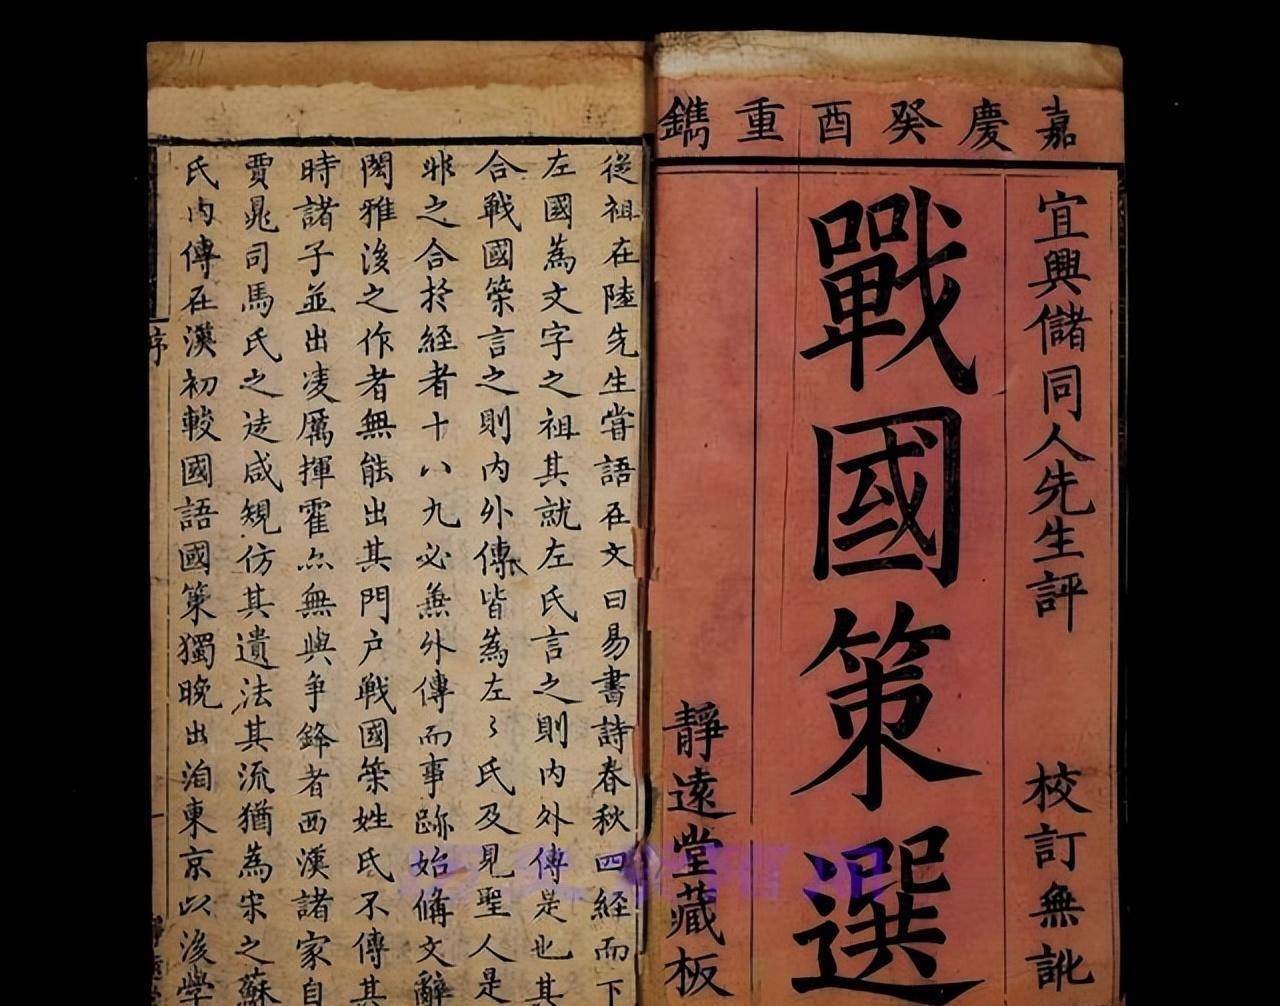 嘉慶癸酉重鐫
宜興儲同人先生評 校訂無訛
戰國策選
靜遠堂藏板
從祖在陸先生嘗語在文曰易書詩春秋四經而下
左國為文字之祖其就左氏言之則內外傳是也其
合戰國筞言之則內外傳皆為左〻氏及見聖人是
非之合於經者十八九必無外傳而事跡始備文辭
閎雅後之作者無能出其門户戰國筞姓氏不傳其
時諸子並出凌厲揮霍亦無與争鋒者西漢諸家自
賈鼂司馬氏之徒咸規仿其遺法其流猶為宋之蘇
氏內傳在漢初較國語國策獨晚出洎東京以後學
序